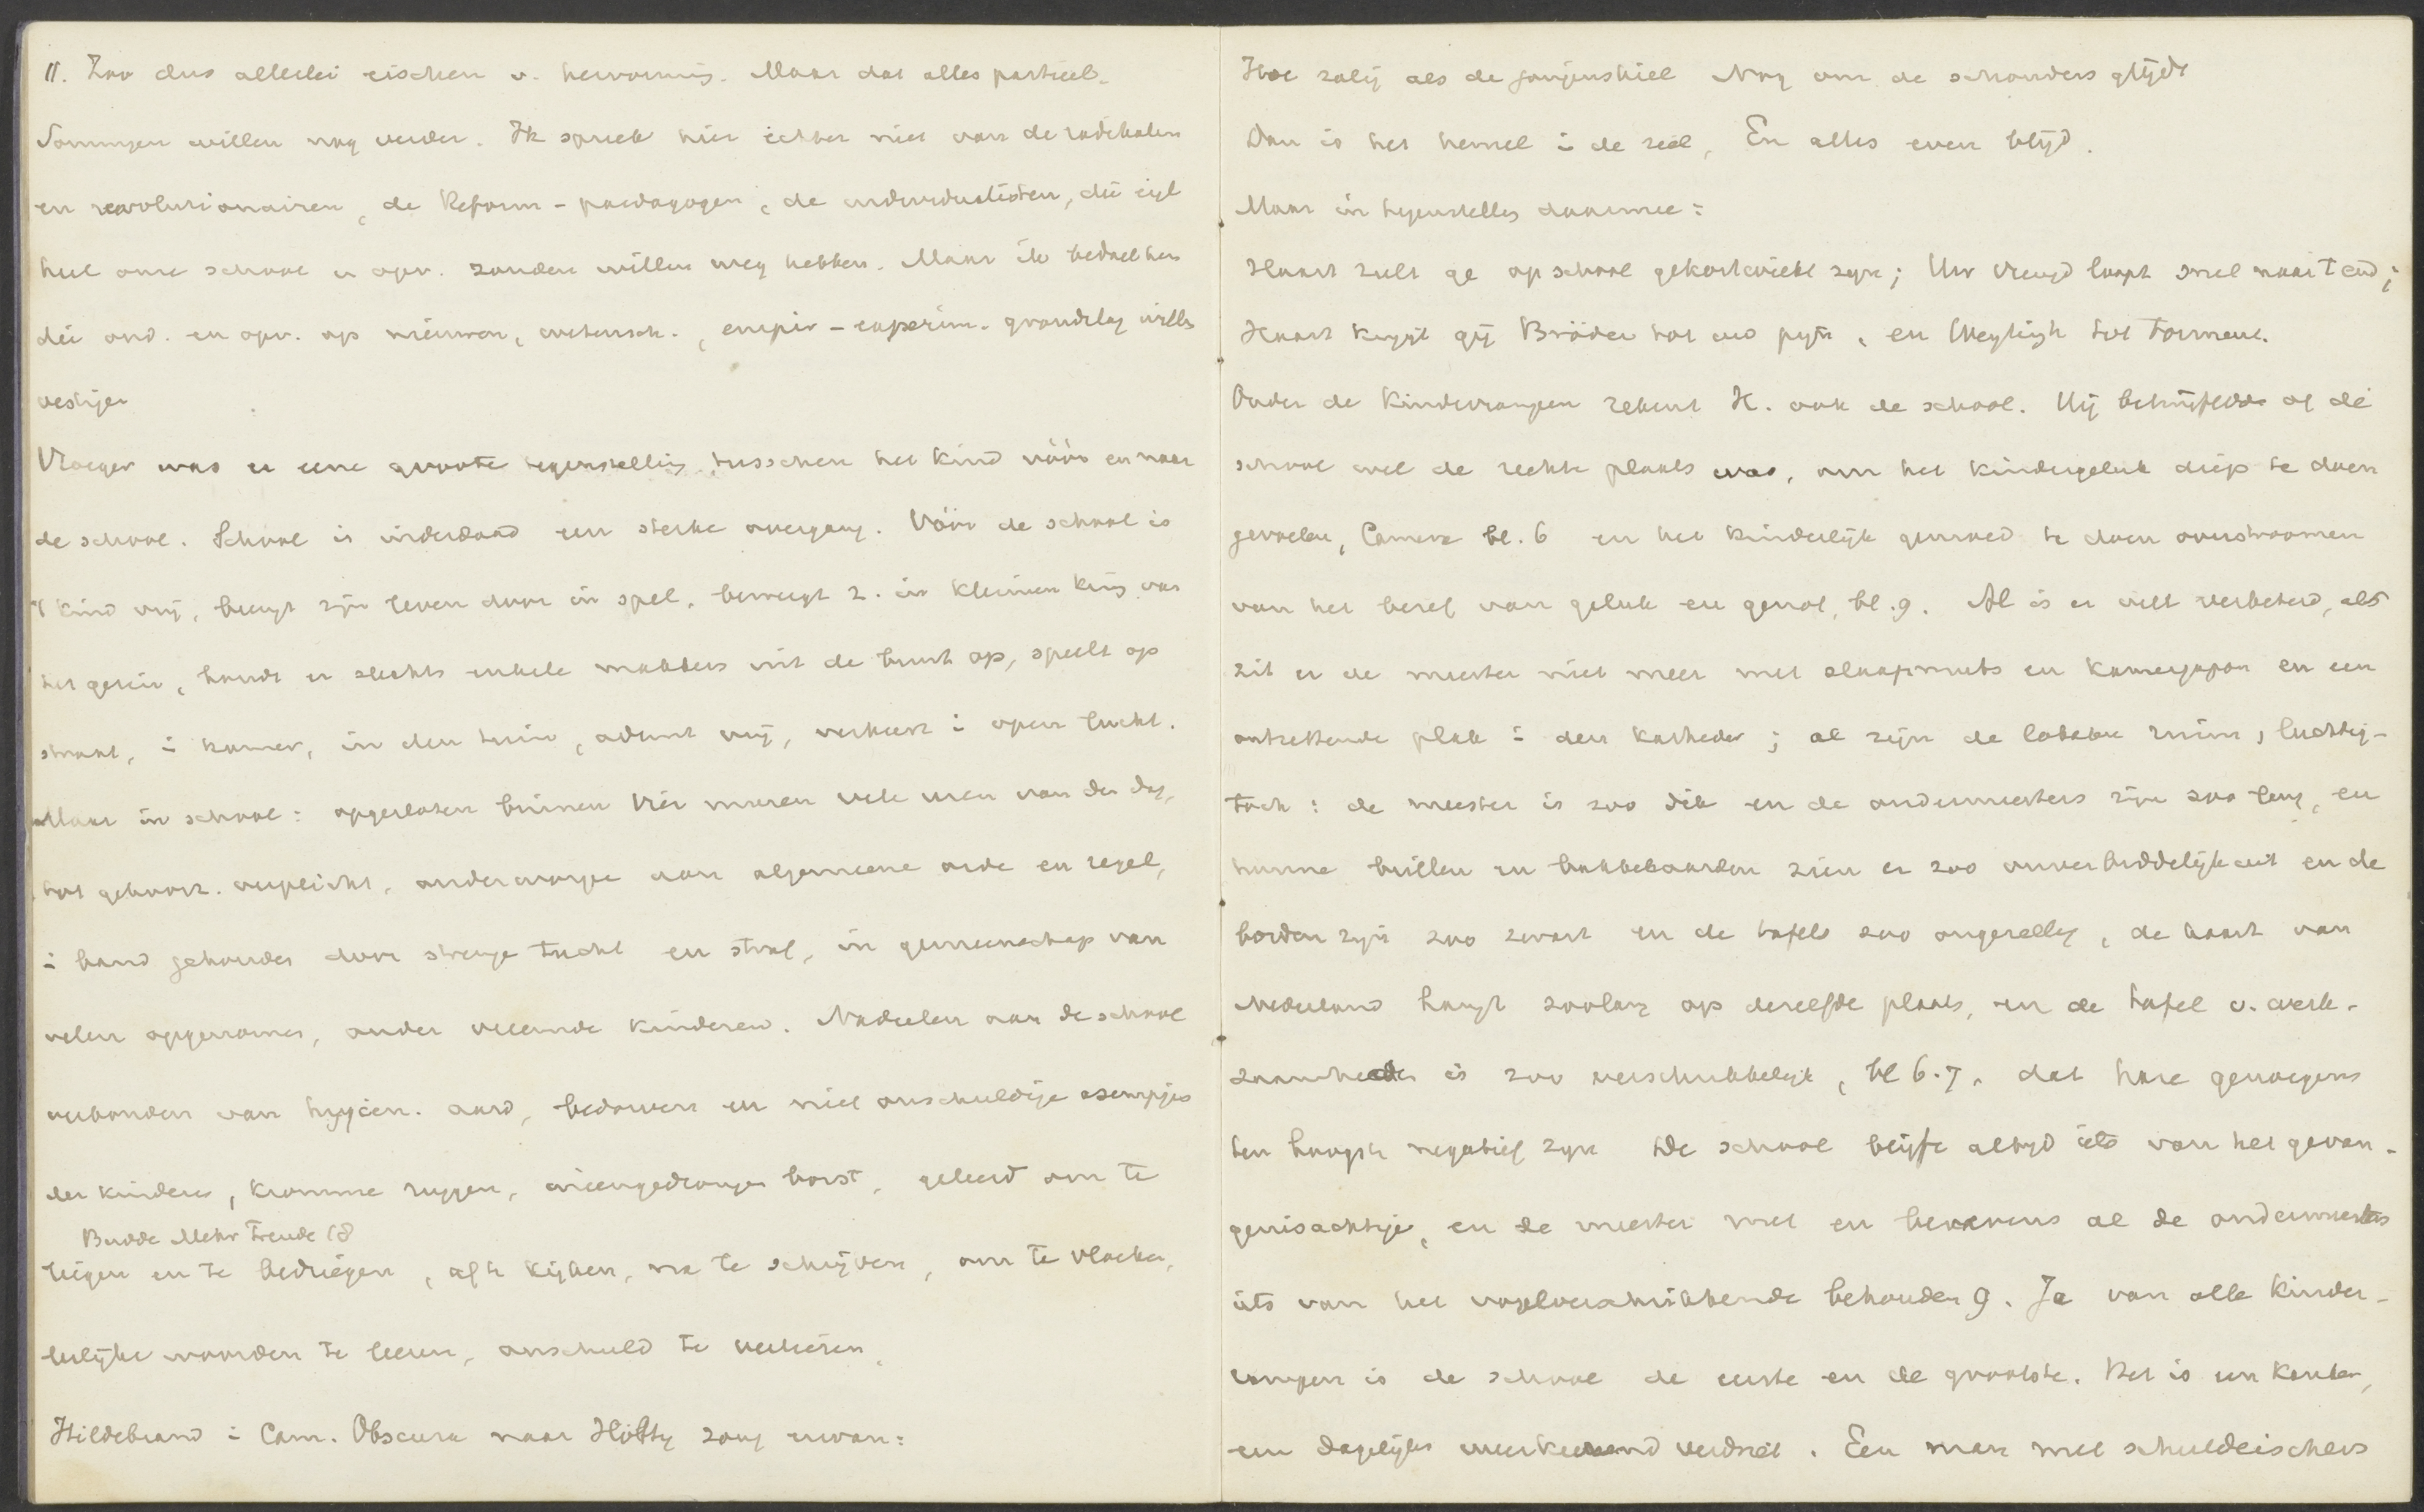 11. Zoo dus allerlei eischen v. hervorming. Maar dat alles partieel.
Sommigen willen nog verder. Ik spreek hier echter niet van de radikalen
en revolutionairen, de Reform-paedagogen, de individualisten, die eigl
heel onze school en opv. zouden willen weg hebben. Maar ik bedoel hen
die ond. en opv. op nieuwen, wetensch., empir-experim. grondslag willen
vestigen
Vroeger was er eene groote tegenstelling tusschen het kind vóór en naar
de school. School is inderdaad een sterke overgang. Vóór de school is
't kind vrij, brengt zijn leven door in spel, beweegt z. in kleinen kring van
het gezin, houdt er slechts enkele makkers uit de buurt op, speelt op
straat, i kamer, in den tuin, ademt vrij, verkeert i open lucht.
Maar in school: opgesloten binnen vier muren vele uren van den dag,
tot gehoorz. verplicht, onderworpen aan algemeene orde en regel,
i band gehouden door strenge tucht en straf, in gemeenschap van
velen opgenomen, onder vreemde kinderen. Nadeelen aan de school
verbonden van hygien. aard, bedorven en niet onschuldige exempjes
der kinderen, kromme ruggen, ineengedrongen borst, geleerd om te
Budde Mehr Freude 18
liegen en te bedriegen, af te kijken, na te schrijven, om te vloeken,
leelijke woorden te leeren, onschuld te verliezen.
Hildebrand i Cam. Obscura naar Hölty zong ervan:
Hoe zalig als de jongenskiel Nog om de schouders glijdt
Dan is het hemel i de ziel, En alles even blijd.
Maar in tegenstelling daarmee:
Haast zult ge op school gekortwiekt zijn; Uw vreugd loopt snel naar 't end;
Haast krijgt gij Bröder tot uw pijn, en Weytingh tot torment.
Onder de kinderrampen rekent H. ook de school. Hij betwijfelde of de
school wel de rechte plaats was, om het kindergeluk diep te doen
gevoelen, Camera bl. 6 en het kinderlijk gemoed te doen overstroomen
van het besef van geluk en genot, bl. 9. Al is er veel verbeterd, als
zit er de meester niet meer met slaapmuts en kamerjapon en een
ontzettende plak i den katheder; al zijn de lokalen ruim, luchtig-
toch: de meester is zoo dik en de ondermeesters zijn zoo lang, en
hunne brillen en bakkebaarden zien er zoo onverbiddelijk uit en de
borden zijn zoo zwart en de tafels zoo ongezellig, de kaart van
Nederland hangt zoolang op dezelfde plaats, en de tafel v. werk-
zaamheden is zoo verschrikkelijk, bl 6.7, dat hare genoegens
ten hoogste negatief zijn De school blijft altijd iets van het gevan-
genisachtige, en de meester met en benevens al de ondermeesters
iets van het vogelverschrikkende behouden 9. Ja van alle kinder-
rampen is de school de eerste en de grootste. Het is een kanker,
een dagelijks weerkeerend verdriet. Een man met schuldeischers